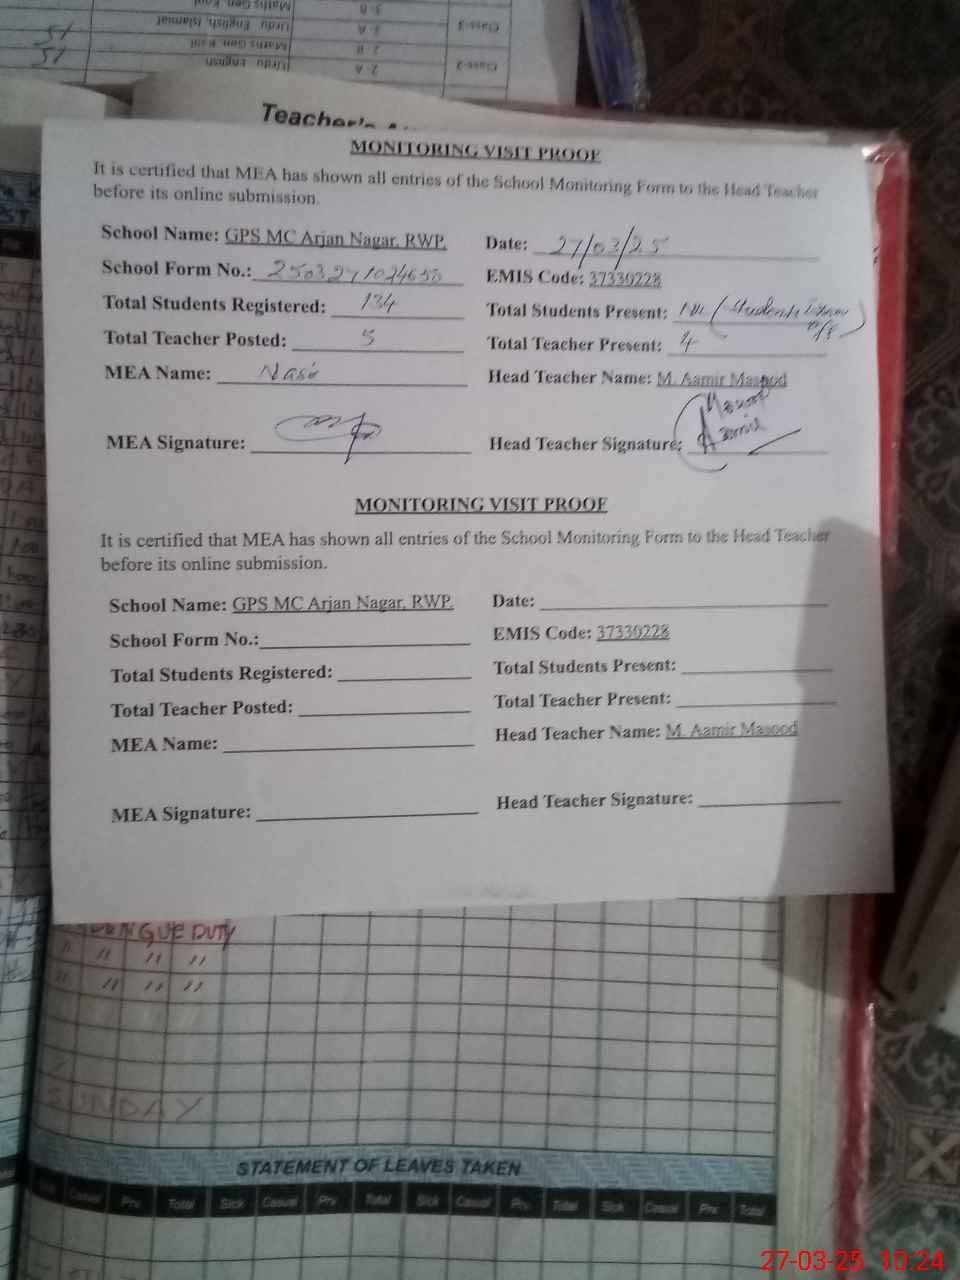 Teacher's
MONITORING VISIT PROOF
It is certified that MEA has shown all entries of the School Monitoring Form to the Head Teacher
before its online submission.
School Name: GPS MC Arjan Nagar, RWP. Date: 27/03/25
School Form No.: EMIS Code: 37330228
Total Students Registered: 134 Total Students Present: Nil (Students
Total Teacher Posted: 5 Total Teacher Present: 4
MEA Name: Nasir Head Teacher Name: M. Aamir Masood
MEA Signature: Head Teacher Signature: Masood
Aamir
MONITORING VISIT PROOF
It is certified that MEA has shown all entries of the School Monitoring Form to the Head Teacher
before its online submission.
School Name: GPS MC Arjan Nagar, RWP. Date:
School Form No.: EMIS Code: 37330228
Total Students Registered: Total Students Present:
Total Teacher Posted: Total Teacher Present:
MEA Name: Head Teacher Name: M. Aamir Masood
MEA Signature: Head Teacher Signature:
DENGUE DUTY
" " " "
" " " "
SUNDAY
STATEMENT OF LEAVES TAKEN
Casual Prv. Total Sick Casual Prv. Total Sick Casual Prv. Total Sick Casual Prv. Total
27-03-25 10:24
Class-3 3-A Urdu, English, Islamiat
2-B Maths Gen. Knol 51
Class-2 2-A Urdu English 51